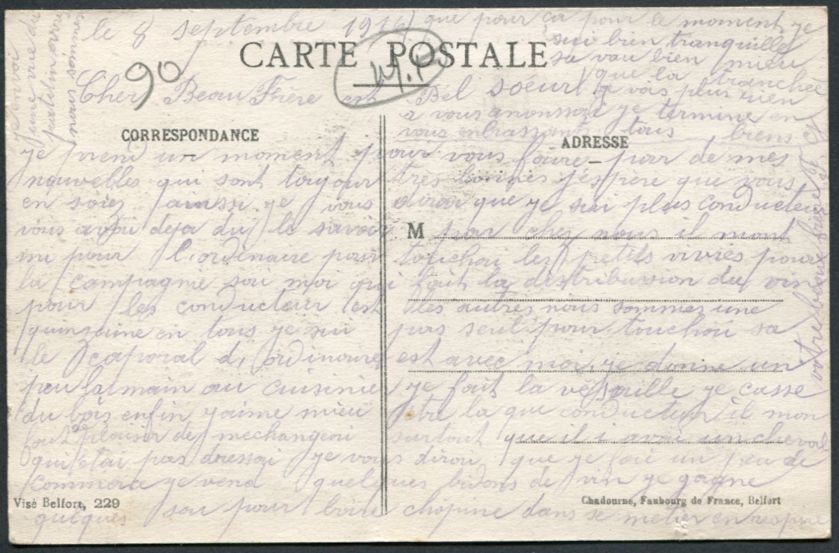 le 8 septembre 1916
CARTE POSTALE
90
Cher Beau Frère et Bel soeur
CORRESPONDANCE
ADRESSE
M
je prend un moment pour vous faire par de mes
nouvelles qui sont toujour très bonnes j'espère que vous
en soiez ainsi je vous dirai que je sui plus conducteur
vous avoir deja du le savoir par chez nous il mont
mi pour l'ordinaire pour touchou les petits vivres pour
la compagnie sou moi qui fait la distribussion du vin
pour les conducteur et les autres nous sommes une
quinzaine en tous je sui pas seul pour touchou sa
le caporal d'ordinaire est avec moi je donne un
peu la main au cuisinie je fait la vesaille je casse
du bois enfin j'aime mieu être la que conducteur il mon
fait plaisir de mechangeoi surtout que il i avai un cheval
qui étai pas dressai je vous dirou que je fait un peu de
commerce je vend quelques bidons de vin je gagne
quelques sou pour boire chopine dans se metier en respire
que pour ça pour le moment je
sui bien tranquille
sa vau bien mieu
que la tranchée
je vois plus rien
a vous anonssai je termine en
vous enbrassant tous biens
votre beaux frère
je envoi
une vue du
patelin
nous sommes
Visé Belfort, 229
Chadourne, Faubourg de France, Belfort